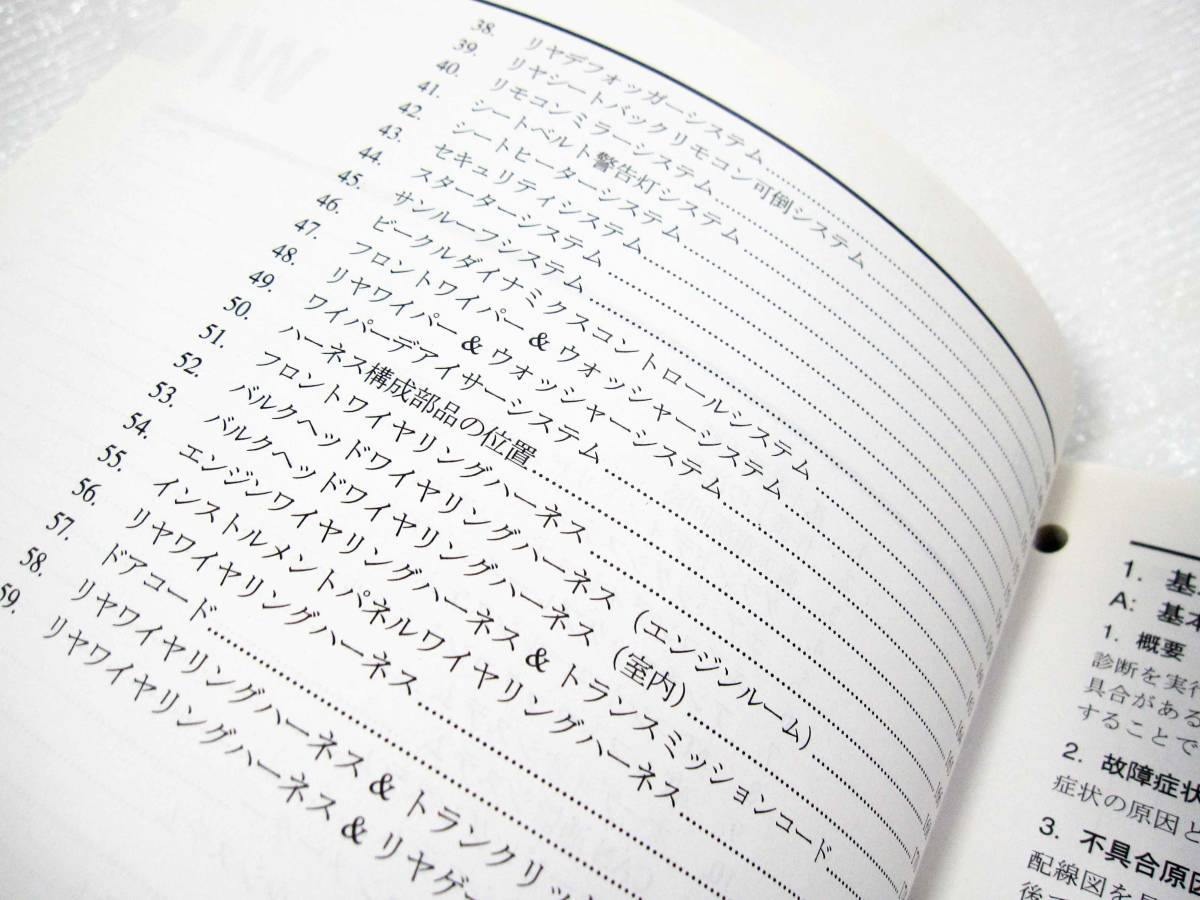 38. リヤデフォッガーシステム
39. リヤシートバックリモコン可倒システム
40. リモコンミラーシステム
41. シートベルト警告灯システム
42. シートヒーターシステム
43. セキュリティシステム
44. スターターシステム
45. サンルーフシステム
46. ビークルダイナミクスコントロールシステム
47. フロントワイパー & ウォッシャーシステム
48. リヤワイパー & ウォッシャーシステム
49. ワイパーデアイサーシステム
50. ハーネス構成部品の位置
51. フロントワイヤリングハーネス
52. バルクヘッドワイヤリングハーネス (エンジンルーム)
53. バルクヘッドワイヤリングハーネス (室内)
54. エンジンワイヤリングハーネス & トランスミッションコード
55. インストルメントパネルワイヤリングハーネス
56. リヤワイヤリングハーネス
57. ドアコード
58. リヤワイヤリングハーネス & トランクリッ
59. リヤワイヤリングハーネス & リヤゲー
1. 基
A: 基本
1. 概要
診断を実行
具合がある
することで
2. 故障症状
症状の原因と
3. 不具合原因
配線図を見
後